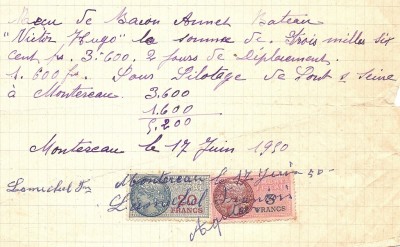 Reçu de Baron Annet Bateau
"Victor Hugo" la somme de. Trois milles six
cent fr. 3.600. 2 jours de Déplacement.
1.600 fr. Pour Pilotage de Pont s Seine
à Montereau 3.600
1.600
5.200
Montereau le 17 Juin 1950
Montereau le 17 Juin 50-
FRANCS
FRANCS